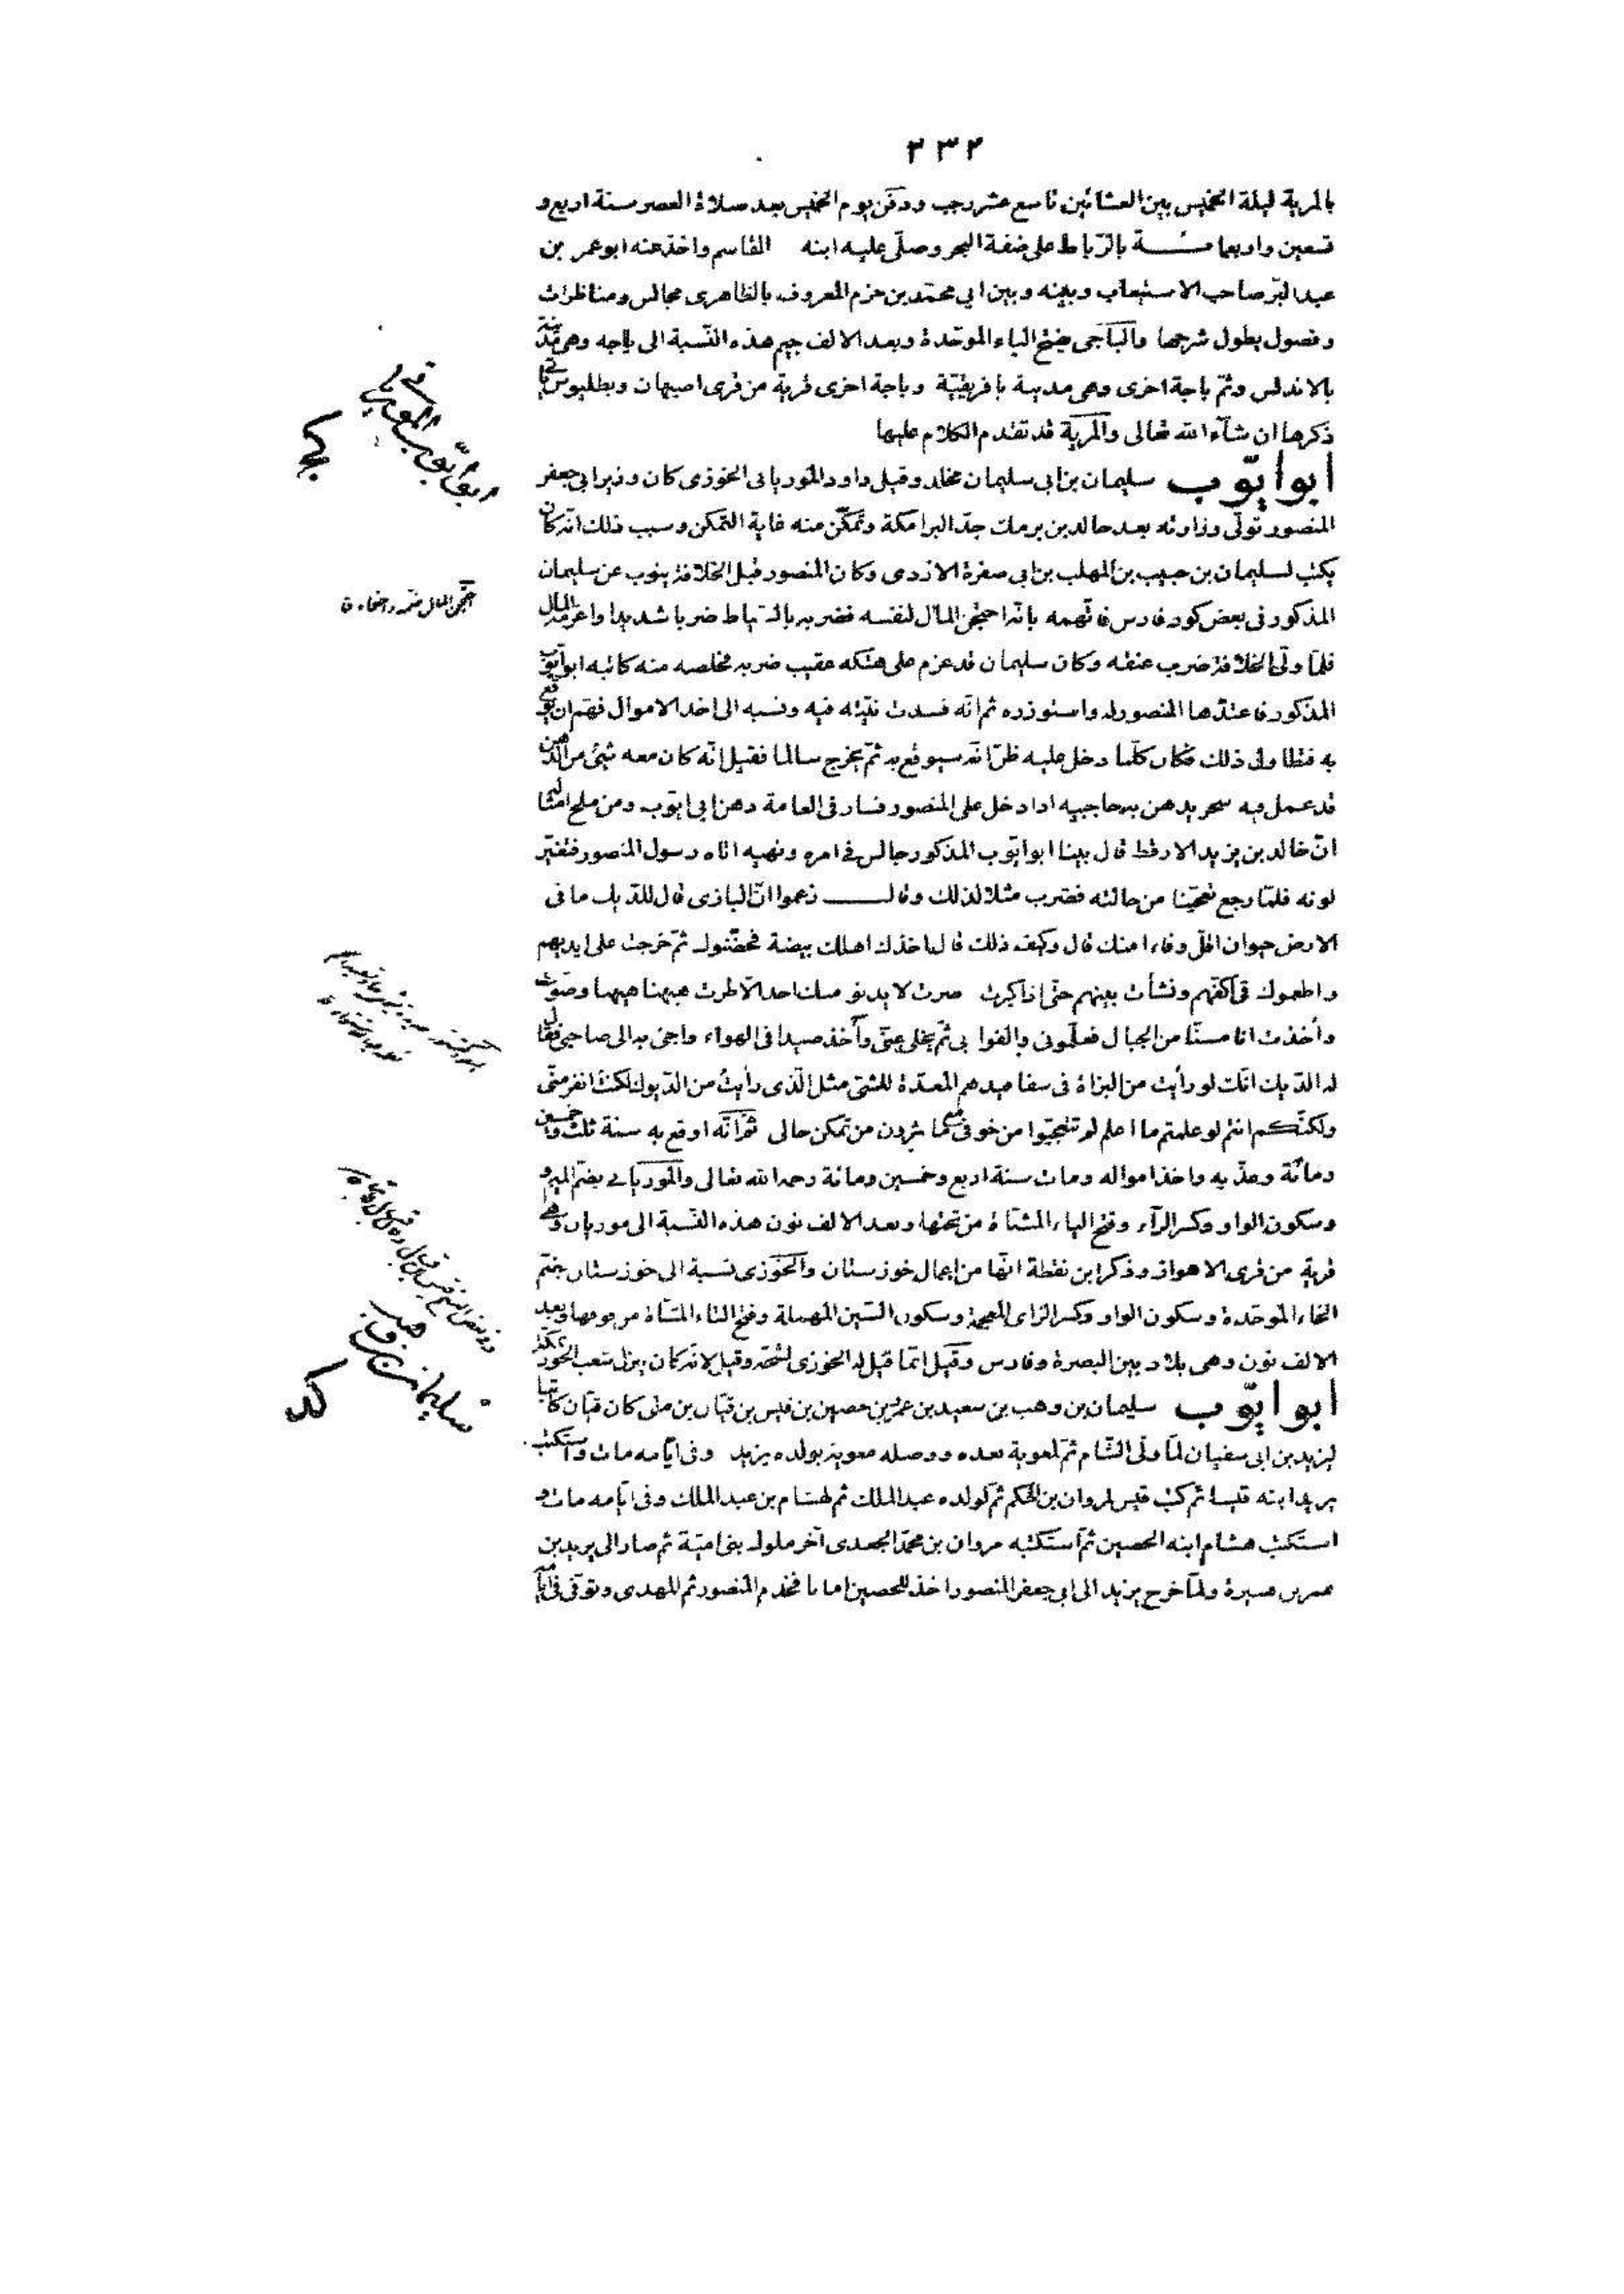 ٢٣٢
بالمرية ليلة الخميس بين العشائين تاسع عشر رجب ودفن يوم الخميس بعد صلاة العصر سنة اربع و
تسعين واربعمائة بالرّباط على ضفة البحر وصلّى عليه ابنه القاسم واخذ عنه ابو عمر بن
عبد البرّ صاحب الاستيعاب وبينه وبين ابي محمّد بن حزم المعروف بالظاهرى مجالس ومناظرات
وفصول يطول شرحها والباجى بفتح الباء الموحّدة وبعد الالف جيم هذه النّسبة الى باجه وهى مدينة
بالاندلس وثمّ باجة اخرى وهى مدينة بافريقيّة وباجة اخرى قرية من قرى اصبهان وبطليوس ياتى
ذكرها ان شآء الله تعالى والمرية قد تقدم الكلام عليها
ابو ايّوب سليمان بن ابى سليمان مخلد وقيل داود الموريانى الخوزى كان وزير ابى جعفر
المنصور تولّى وزارته بعد خالد بن برمك جدّ البرامكة وتمكّن منه غاية التمكن وسبب ذلك انّه كان
يكتب لسليمان بن حبيب بن المهلب بن ابى صفرة الازدى وكان المنصور قبل الخلافة ينوب عن سليمان
المذكور فى بعض كور فارس فاتّهمه بانّه احتجن المال لنفسه فضربه بالسّياط ضربا شديدا واغرمه المال
فلمّا ولّى الخلافة ضرب عنقه وكان سليمان قد عزم على هتكه عقيب ضربه فخلصه منه كاتبه ابو ايّوب
المذكور فاعتدّها المنصور له واستوزره ثم انّه فسدت نيّته فيه ونسبه الى اخذ الاموال فهمّ ان يوقع
به فتطاول ذلك فكان كلّما دخل عليه ظنّ انّه سيوقع به ثمّ يخرج سالما فقيل انّه كان معه شئ من الدّهن
قد عمل فيه سحر يدهن به حاجبيه اذا دخل على المنصور فسار فى العامة دهن ابى ايّوب ومن ملح امثاله
انّ خالد بن يزيد الارقط قال بينا ابو ايّوب المذكور جالس فى امره ونهيه اتاه رسول المنصور فتغيّر
لونه فلمّا رجع تعجّبنا من حالته فضرب مثلا لذلك وقال زعموا انّ البازى قال للدّيك ما فى
الارض حيوان اقلّ وفاء منك قال وكيف ذلك قال اخذك اهلك بيضة فحضنوك ثمّ خرجت على ايديهم
واطعموك فى اكفّهم ونشأت بينهم حتّى اذا كبرت صرت لا يدنو منك احد الّا طرت هيهنا هيهنا وصوّتّ
وأخذت انا مسنّا من الجبال فعلّمونى والفوا بى ثمّ يخلى عنّى وآخذ صيدا فى الهواء واجئ به الى صاحبى فقال
له الدّيك انّك لو رأيت من البزاة فى سفافيدهم المعدّة للشى مثل الّذى رأيت من الدّيوك لكنت انفر منّى
ولكنّكم انتم لو علمتم ما اعلم لم تتعجّبوا من خوفى مع ما ترون من تمكن حالى ثمّ انّه اوقع به سنة ثلث وخمسين
ومائة وعذّبه واخذ امواله ومات سنة اربع وخمسين ومائة رحمه الله تعالى والموريانى بضمّ الميم و
وسكون الواو وكسر الرّآء وفتح الياء المثنّاة من تحتها وبعد الالف نون هذه النّسبة الى موريان وهى
قرية من قرى الاهواز وذكر ابن نقطة انّها من اعمال خوزستان والخوزى نسبة الى خوزستان بضمّ
الخاء الموحّدة وسكون الواو وكسر الزاى المعجمة وسكون السّين المهملة وفتح التاء المثنّاة من فوقها وبعد
الالف نون وهى بلاد بين البصرة وفارس وقيل انّما قيل له الخوزى لشحّه وقيل لانّه كان ينزل شعب الخوز بمكّة
ابو ايّوب سليمان بن وهب بن سعيد بن عمرو بن حصين بن قيس بن قنّان بن متى كان قنّان كاتبا
ليزيد بن ابى سفيان لمّا ولّى الشّام ثمّ لمعوية بعده ووصله معوية بولده يزيد وفى ايّامه مات واستكتب
يزيد ابنه قيسا ثم كتب قيس لمروان بن الحكم ثمّ لولده عبد الملك ثم لهشام بن عبد الملك وفى ايّامه مات و
استكتب هشام ابنه الحصين ثمّ استكتبه مروان بن محمّد الجعدى آخر ملوك بنى اميّة ثم صار الى يزيد بن
عمر بن هبيرة ولمّا خرج يزيد الى ابى جعفر المنصور اخذ للحصين امانا فخدم المنصور ثم المهدى وتوفّى فى ايّامه
ابو ايّوب الموريانى
احتجن المال ضمّه واخفاه ق
سليمان بن وهب